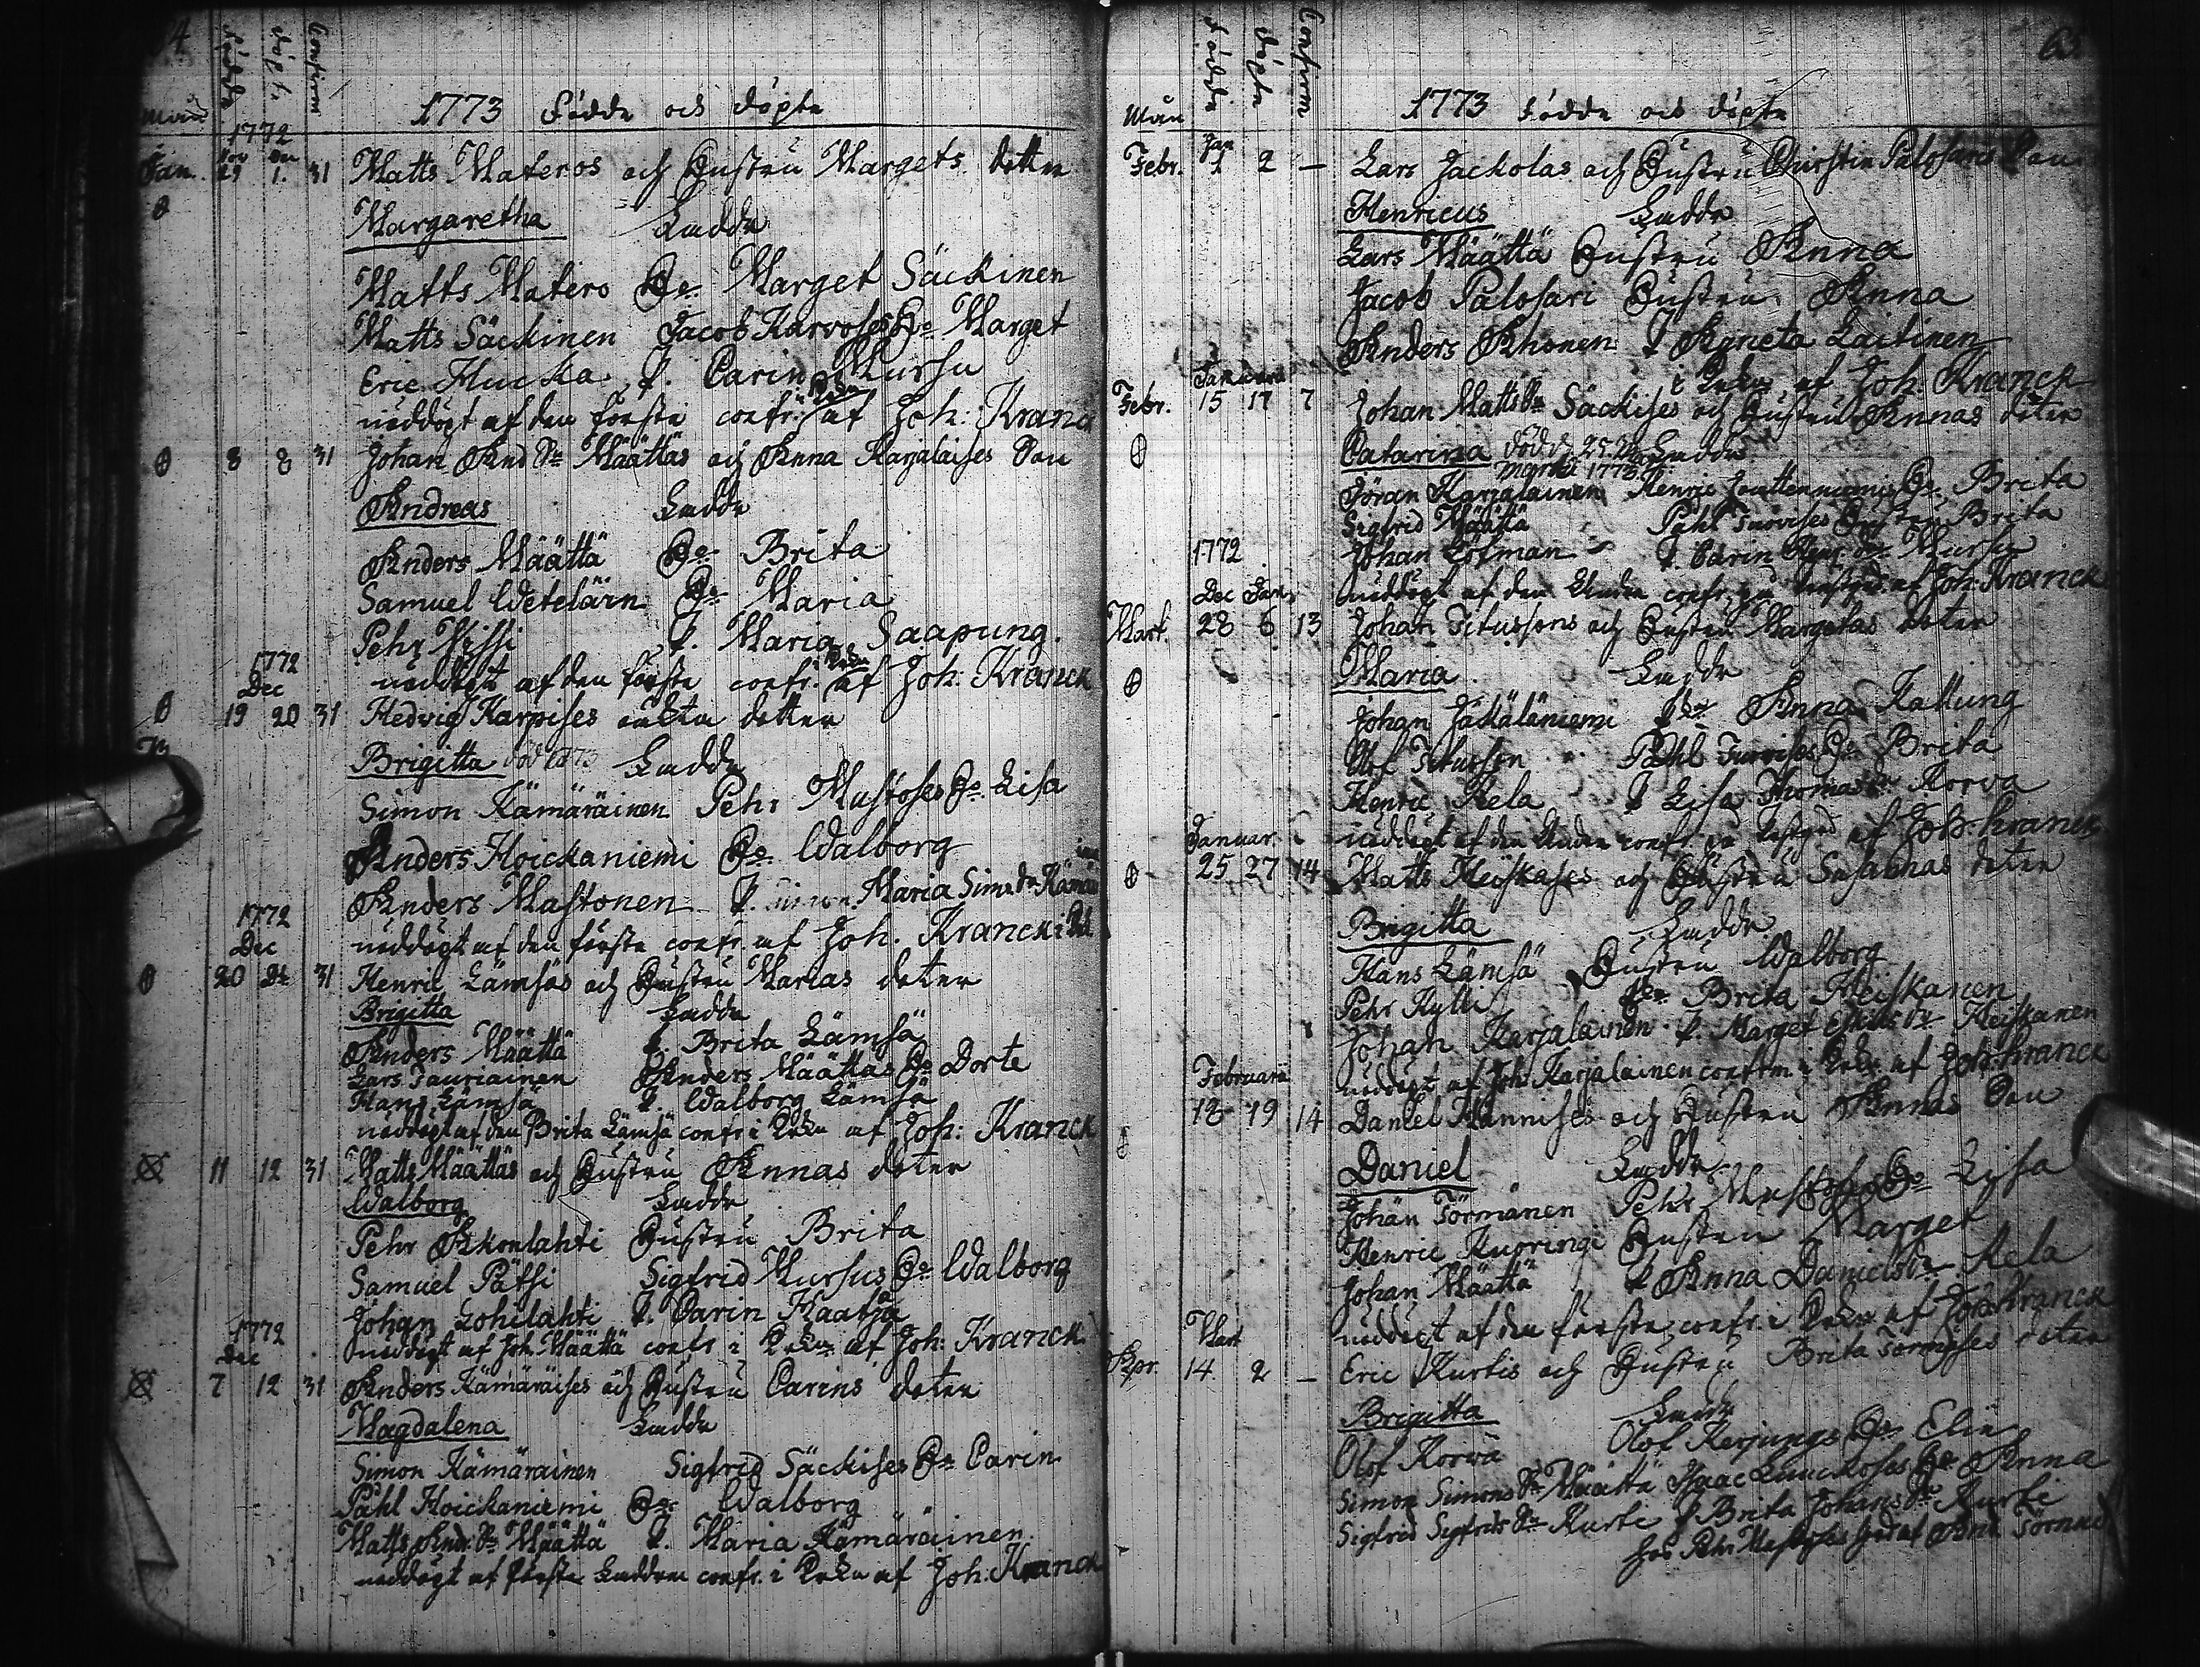 64
Månad Födde döpte Confirm
1773 Födde och döpte
1772
Jan. Nov 29 Dec 1. 31 Matts Materos och Hustru Margets dotter
Margaretha Fadde
Matts Matero Ho Marget Säckinen
Matts Säckinen Jacob Karvoses Ho Marget
Eric Hucka P. Carin Mursu
nöddöpt af den förste confr. i Kkn af Joh: Kranck
8 8 31 Johan And Sn Määttäs och Anna Karjalaises Son
Andreas Fadde
Anders Määttä Ho Brita
Samuel Wetelärn Ho Maria
Pehr P. Maria Saapung.
nöddöpt af den förste confr. i Kkn af Joh: Kranck
1772
Dec
19 20 31 Hedvig Karpises oäkta dotter
Brigitta död 1773 Fadde
Simon Kämäräinen Pehr Mustoses Ho Lisa
Anders Hoickaniemi Ho Walborg
Anders Mastonen P. Maria Sims dr Kämäräinen
nöddöpt af den förste confr. af Joh. Kranck i Kk
1772
Dec
20 26 31 Henric Lämsäs och Hustru Marias doter
Brigitta Fadde
Anders Määttä P. Brita Lämsä
Lars Tauriainen Anders Määttäs Ho Dorte
Hans Lämsä P. Walborg Lämsä
nöddöpt af den Brita Lämsä confr i Kkn af Joh: Kranck
11 12 31 Matts Määttäs och Hustru Annas doter
Walborg Fadde
Pehr Akonlahti Hustru Brita
Samuel Pätsi Sigfrid Mursus Ho Walborg
Johan Lohilahti P. Carin Haataja
nöddöpt af Joh Määttä confr i Kkn af Joh: Kranck
1772
Dec
7 12 31 Anders Kämäräises och Hustru Carins doter
Magdalena Fadde
Simon Kämäräinen Sigfrid Säckises Ho Carin
Påhl Hoickaniemi Ho Walborg
Matts Andr. Sn Määttä P. Maria Kämäräinen
nöddöpt af förste Faddren confr. i Kkn af Joh: Kranck
65
Mån Födde döpte Confirm
1773 Födde och döpte
Febr. Jan 1 2 – Lars Jackolas och Hustru Chirstin Palosaris Son
Henricus Fadde
Lars Määttä Hustru Anna
Jacob Palosari Hustru Anna
Anders Ahonen P Agneta Laitinen
i Kkn af Joh: Kranck
Januari
Febr. 15 17 7 Johan Matts Sn Säckises och Hustru Annas doter
Catarina död d. 25 Fadde
Martii 1773
Jöran Karjalainen Henric Ho Brita
Sigfrid Määttä Påhl Turvises Hustru Brita
Johan Löfman P. Carin Mursu
nöddöpt af den Andra confr. af Joh: Kranck
1772
Dec Jan.
Mart. 28 6 13 Johan Titussons och Hustru Margetas doter
Maria Fadde
Johan Jäkäläniemi Anna Kallung
Olof Titusson Påhl Turvises Ho Brita
Henric Kela P Lisa Thomas Dr Korva
nöddöpt af den Andra confr. af Joh: Kranck
Januar.
25 27 14 Matts Heiskases och Hustru Susannas doter
Brigitta Fadde
Hans Lämsä Hustru Walborg
Pehr Kylli Brita Heiskanen
Johan Karjalainen P. Marget Eskils Dr Heiskanen
nöddöpt af Joh Karjalainen confirm i Kkn af Joh: Kranck
Februari
18 19 14 Daniel Hannises och Hustru Annas Son
Daniel Fadde
Johan Törmänen Pehr Mustoses Ho Lisa
Henric Kurringi Hustru Marget
Johan Määttä P Anna Daniels Dr Kela
nöddöpt af den förste confr. i Kkn af Joh: Kranck
Mart
Apr. 14 2 – Eric Kurtis och Hustru Brita Törmäses doter
Brigitta Fadde
Olof Korva Olof Kerjungs Ho Elin
Simon Simons Sn Määttä Isaac Ho Anna
Sigfrid Sigfrids Sn Kurti P Brita Johans Dr Kurti
hos Pehr Mustoses